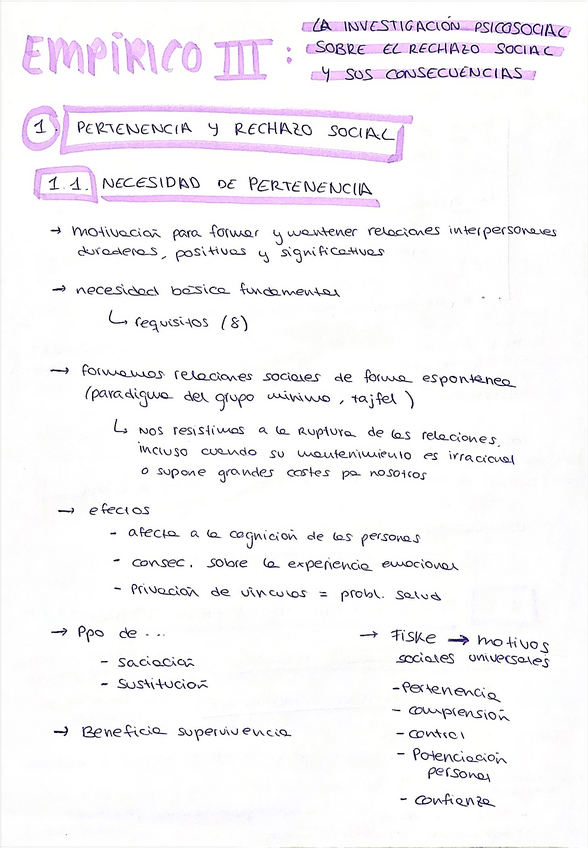 EMPÍRICO III :
LA INVESTIGACIÓN PSICOSOCIAL
SOBRE EL RECHAZO SOCIAL
Y SUS CONSECUENCIAS
1 PERTENENCIA Y RECHAZO SOCIAL
1.1. NECESIDAD DE PERTENENCIA
→ motivación para formar y mantener relaciones interpersonales
duraderas, positivas y significativas
→ necesidad básica fundamental
↳ requisitos (8)
→ formamos relaciones sociales de forma espontánea
(paradigma del grupo mínimo, tajfel)
↳ Nos resistimos a la ruptura de las relaciones,
incluso cuando su mantenimiento es irracional
o supone grandes costes pa nosotros
→ efectos
- afecta a la cognición de las personas
- consec. sobre la experiencia emocional
- Privación de vínculos = probl. salud
→ Ppo de ...
- saciación
- sustitución
→ Beneficia supervivencia
→ Fiske → motivos
sociales universales
- Pertenencia
- comprensión
- control
- Potenciación
personal
- confianza